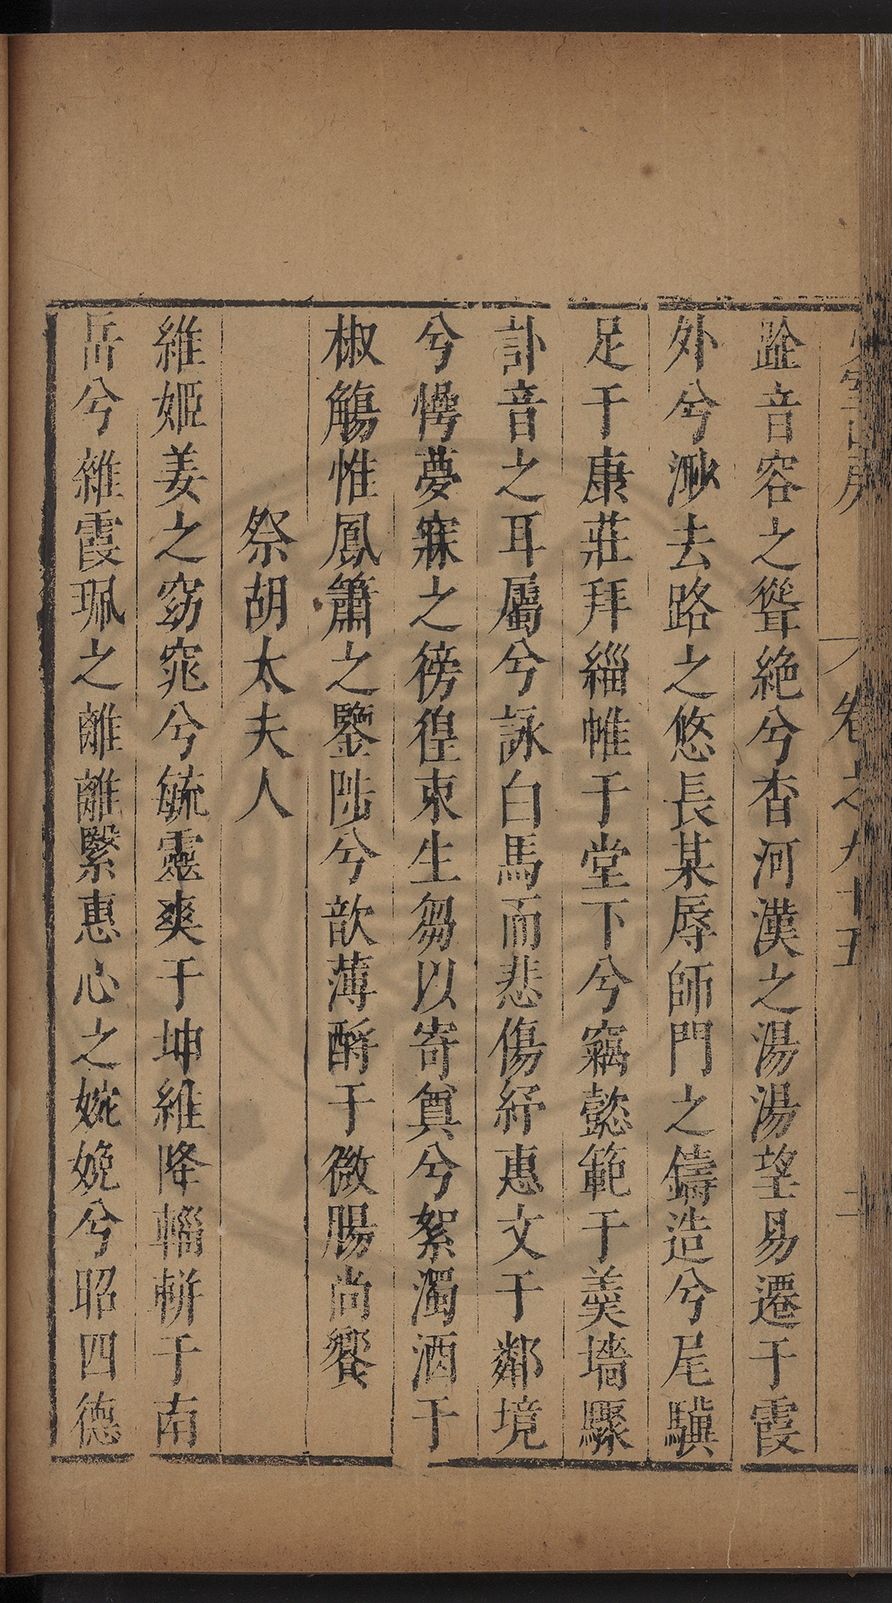 卷之九十五
二
跫音容之聳絶兮杳河漢之湯湯望易遷于霞
外兮渺去路之悠長某辱師門之鑄造兮尾驥
足于康莊拜緇帷于堂下兮竊懿範于羹墻驟
訃音之耳屬兮詠白馬而悲傷紓惠文于鄰境
兮愕夢寐之徬徨束生芻以寄奠兮絮濁酒于
椒觴惟鳳簫之鑒陟兮歆薄酹于微腸尚饗
祭胡太夫人
維姬姜之窈窕兮毓靈爽于坤維降輜軿于南
岳兮雜霞珮之離離繄惠心之婉娩兮昭四德